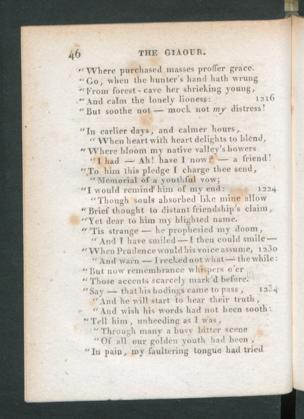 46 THE GIAOUR.
"Where purchased masses proffer grace.
"Go, when the hunter's hand hath wrung
"From forest-cave her shrieking young,
"And calm the lonely lioness: 1216
"But soothe not — mock not my distress!
"In earlier days, and calmer hours,
"When heart with heart delights to blend,
"Where bloom my native valley's bowers
"I had — Ah! have I now? — a friend!
"To him this pledge I charge thee send,
"Memorial of a youthful vow;
"I would remind him of my end: 1224
"Though souls absorbed like mine allow
"Brief thought to distant friendship's claim,
"Yet dear to him my blighted name.
"'Tis strange — he prophesied my doom,
"And I have smiled — I then could smile —
"When Prudence would his voice assume, 1230
"And warn — I recked not what — the while:
"But now remembrance whispers o'er
"Those accents scarcely mark'd before.
"Say — that his bodings came to pass, 1234
"And he will start to hear their truth,
"And wish his words had not been sooth:
"Tell him, unheeding as I was,
"Through many a busy bitter scene
"Of all our golden youth had been,
"In pain, my faultering tongue had tried